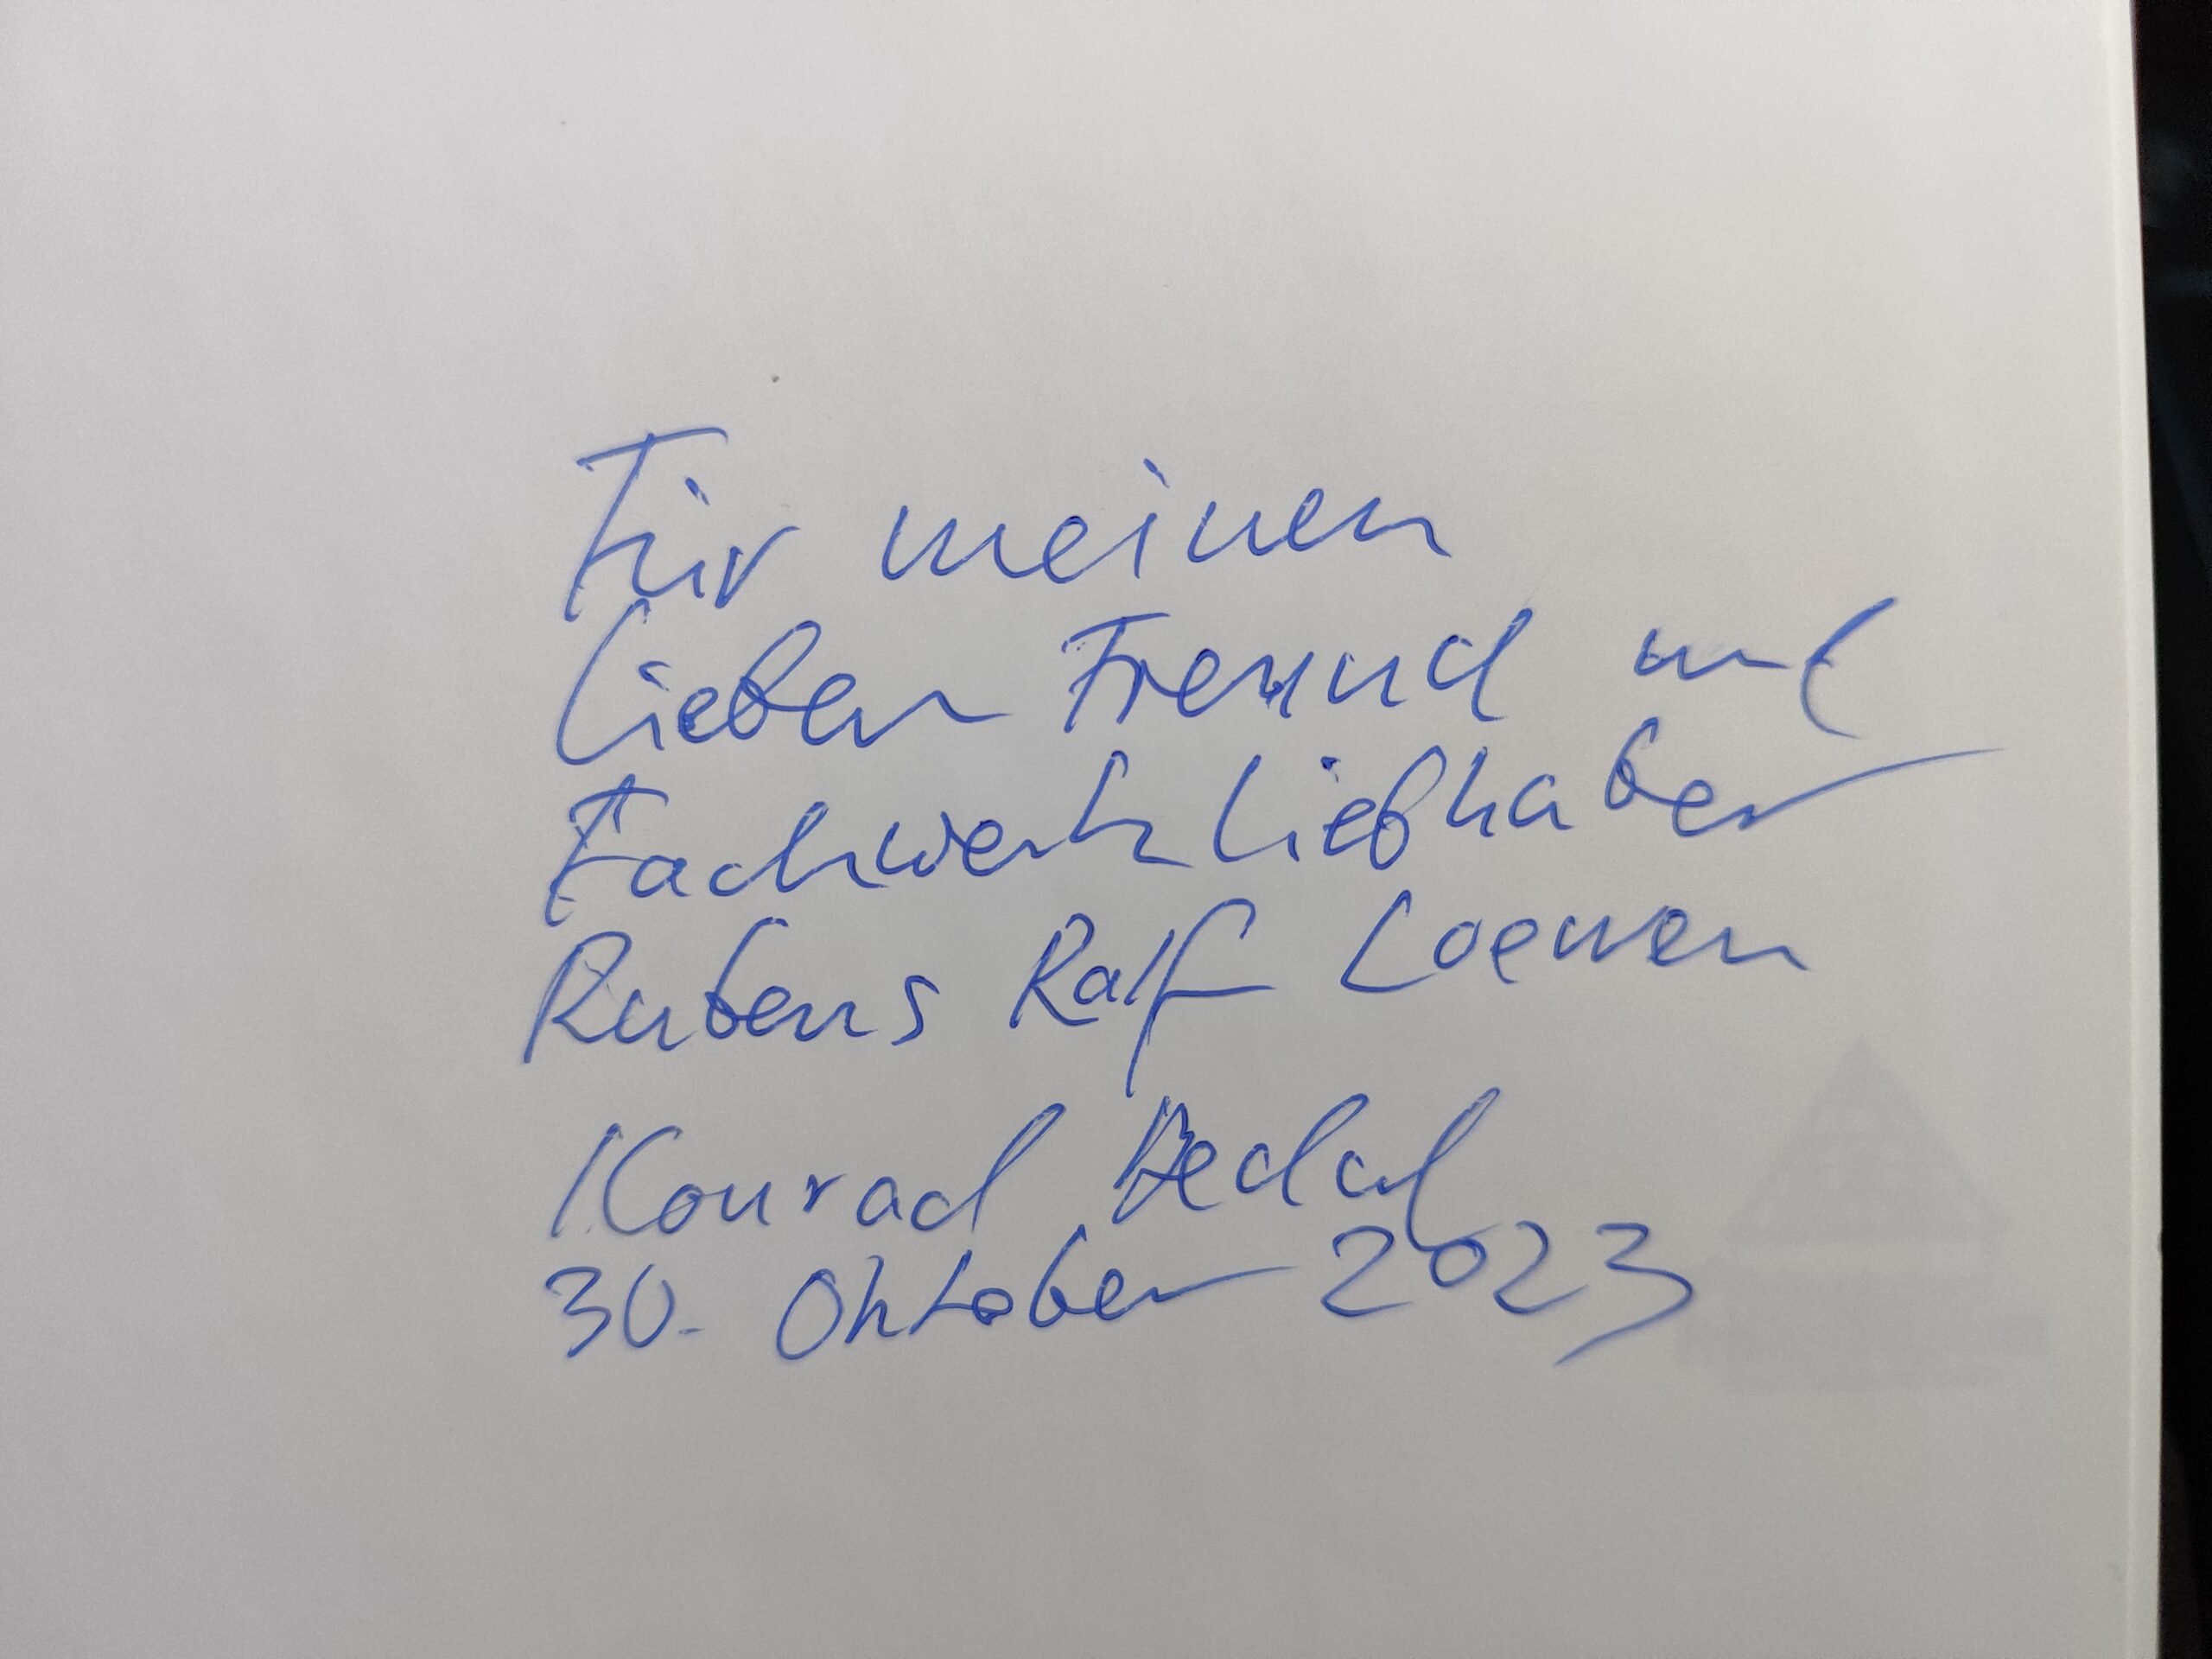 Für meinen
lieben Freund und
Fachwerkliebhaber
Rubens Ralf Loewen
Konrad Bedal
30. Oktober 2023